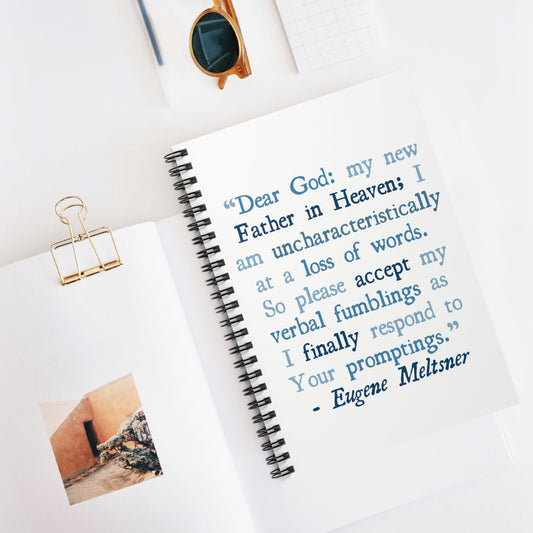 “Dear God: my new
Father in Heaven; I
am uncharacteristically
at a loss of words.
So please accept my
verbal fumblings as
I finally respond to
Your promptings.”
- Eugene Meltsner